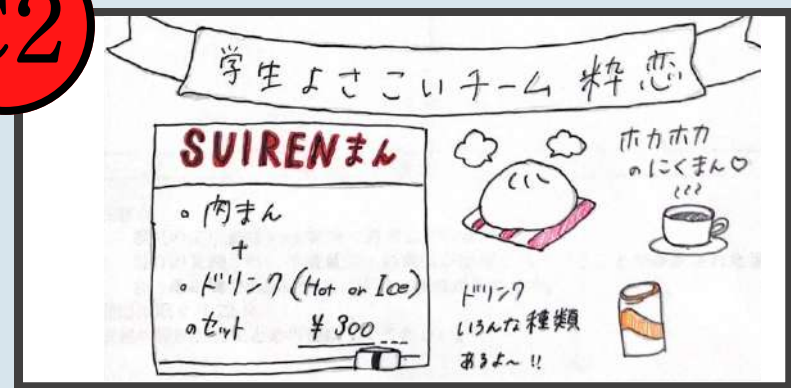 C2
学生よさこいチーム 粋恋
SUIRENまん
。肉まん
+
。ドリンク(Hot or Ice)
のセット ¥300
ホカホカ
のにくまん♡
ドリンク
いろんな種類
あるよ〜!!